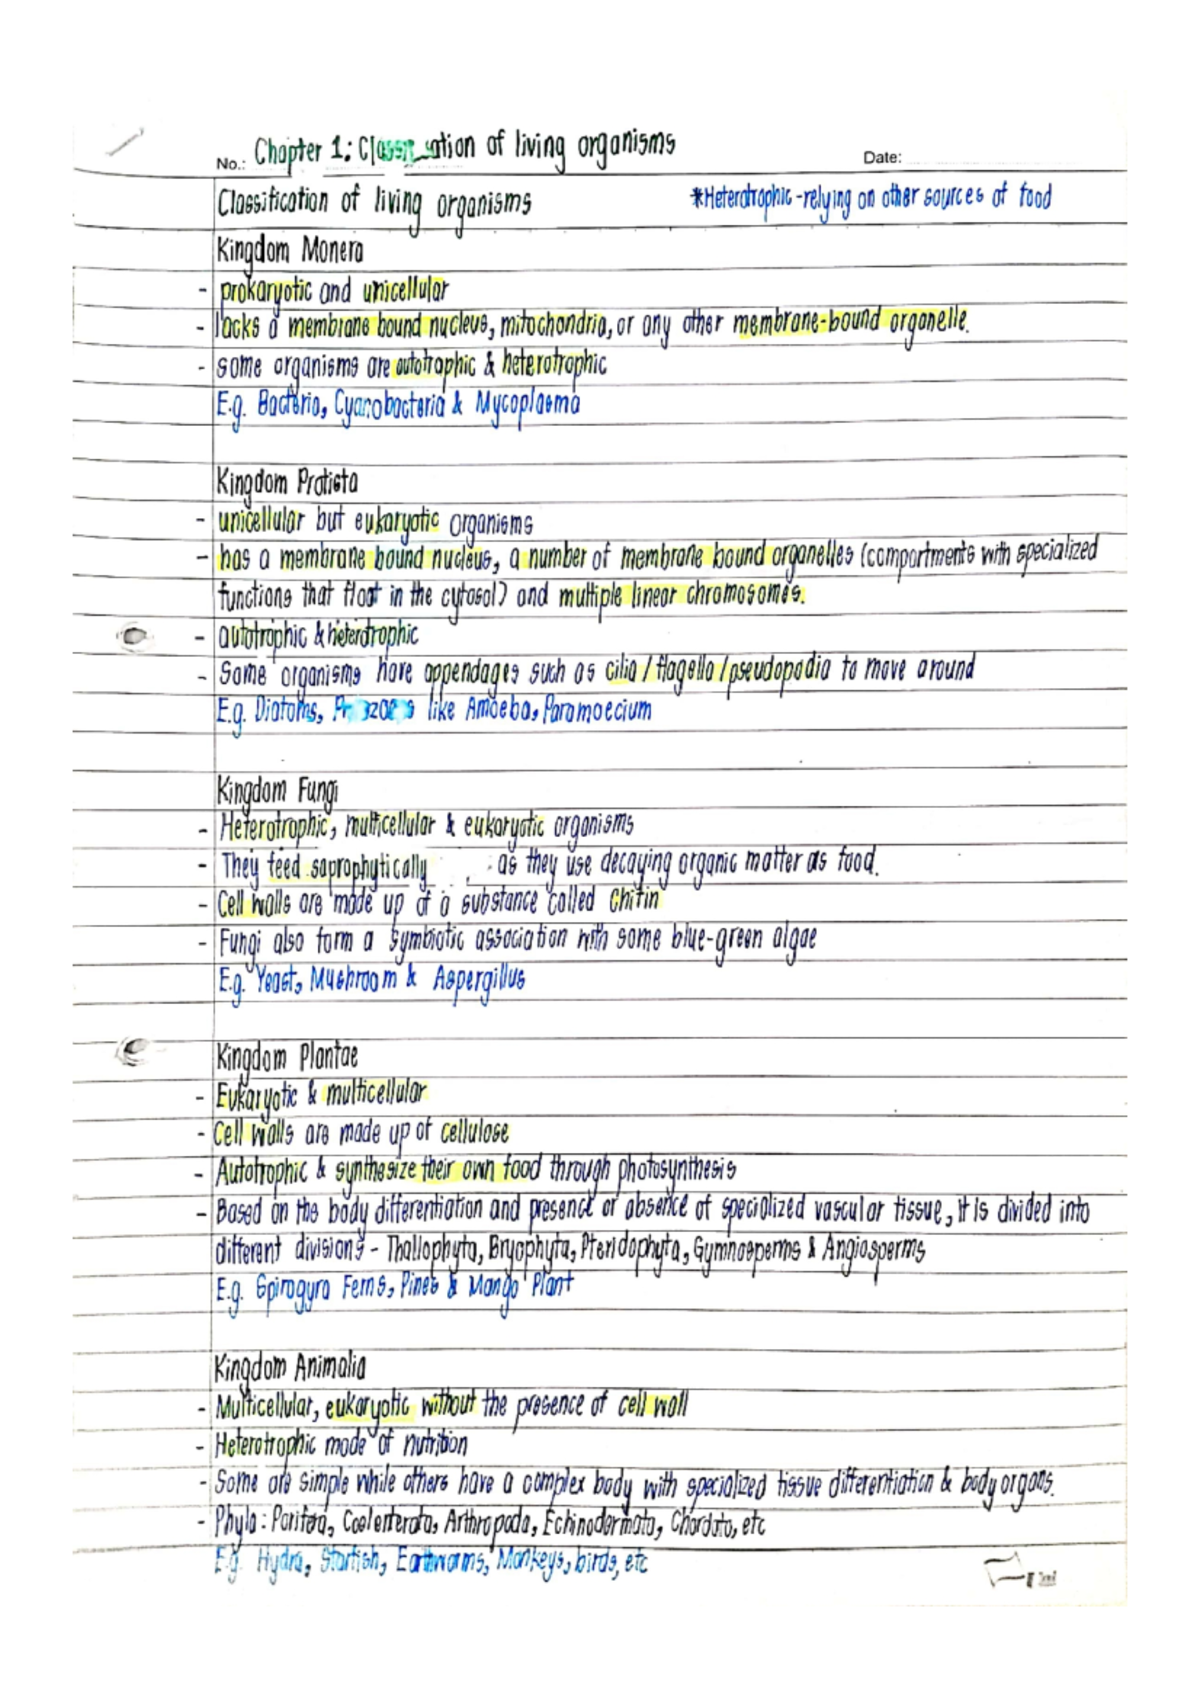 No.: Chapter 1: Classification of living organisms Date:
Classification of living organisms *Heterotrophic - relying on other sources of food
Kingdom Monera
- prokaryotic and unicellular
- lacks a membrane bound nucleus, mitochondria, or any other membrane-bound organelle.
- some organisms are autotrophic & heterotrophic
E.g. Bacteria, Cyanobacteria & Mycoplasma
Kingdom Protista
- unicellular but eukaryotic organisms
- has a membrane bound nucleus, a number of membrane bound organelles (compartments with specialized
functions that float in the cytosol) and multiple linear chromosomes.
- autotrophic & heterotrophic
- Some organisms have appendages such as cilia / flagella / pseudopodia to move around
E.g. Diatoms, like Amoeba, Paramoecium
Kingdom Fungi
- Heterotrophic, multicellular & eukaryotic organisms
- They feed saprophytically as they use decaying organic matter as food.
- Cell walls are made up of a substance called Chitin
- Fungi also form a symbiotic association with some blue-green algae
E.g. Yeast, Mushroom & Aspergillus
Kingdom Plantae
- Eukaryotic & multicellular
- Cell walls are made up of cellulose
- Autotrophic & synthesize their own food through photosynthesis
- Based on the body differentiation and presence or absence of specialized vascular tissue, it is divided into
different divisions - Thallophyta, Bryophyta, Pteridophyta, Gymnosperms & Angiosperms
E.g. Spirogyra Ferns, Pines & Mango Plant
Kingdom Animalia
- Multicellular, eukaryotic without the presence of cell wall
- Heterotrophic mode of nutrition
- Some are simple while others have a complex body with specialized tissue differentiation & body organs.
- Phyla: Porifera, Coelenterata, Arthropoda, Echinodermata, Chordata, etc
E.g. Hydra, Starfish, Earthworms, Monkeys, birds, etc